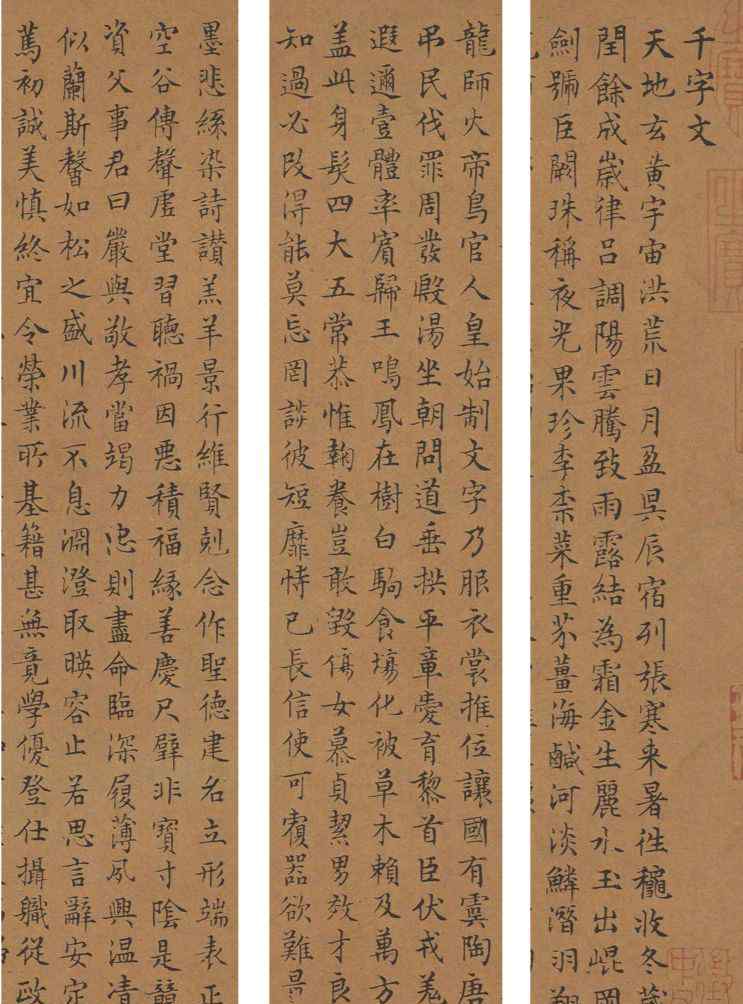 千字文
天地玄黃宇宙洪荒日月盈昃辰宿列張寒来暑往穐收冬蔵
閏餘成歲律呂調陽雲騰致雨露結為霜金生麗水玉出崐岡
劍號巨闕珠稱夜光果珍李柰菜重芥薑海鹹河淡鱗潛羽翔
龍師火帝鳥官人皇始制文字乃服衣裳推位讓國有虞陶唐
弔民伐罪周發殷湯坐朝問道垂拱平章愛育黎首臣伏戎羌
遐邇壹體率賓歸王鳴鳳在樹白駒食場化被草木賴及萬方
盖此身髮四大五常恭惟鞠養豈敢毀傷女慕貞絜男效才良
知過必改得能莫忘罔談彼短靡恃己長信使可覆器欲難量
墨悲絲染詩讚羔羊景行維賢剋念作聖德建名立形端表正
空谷傳聲虛堂習聽禍因惡積福緣善慶尺璧非寶寸陰是競
資父事君曰嚴與敬孝當竭力忠則盡命臨深履薄夙興温凊
似蘭斯馨如松之盛川流不息淵澄取暎容止若思言辭安定
篤初誠美慎終宜令榮業所基籍甚無竟學優登仕攝職從政